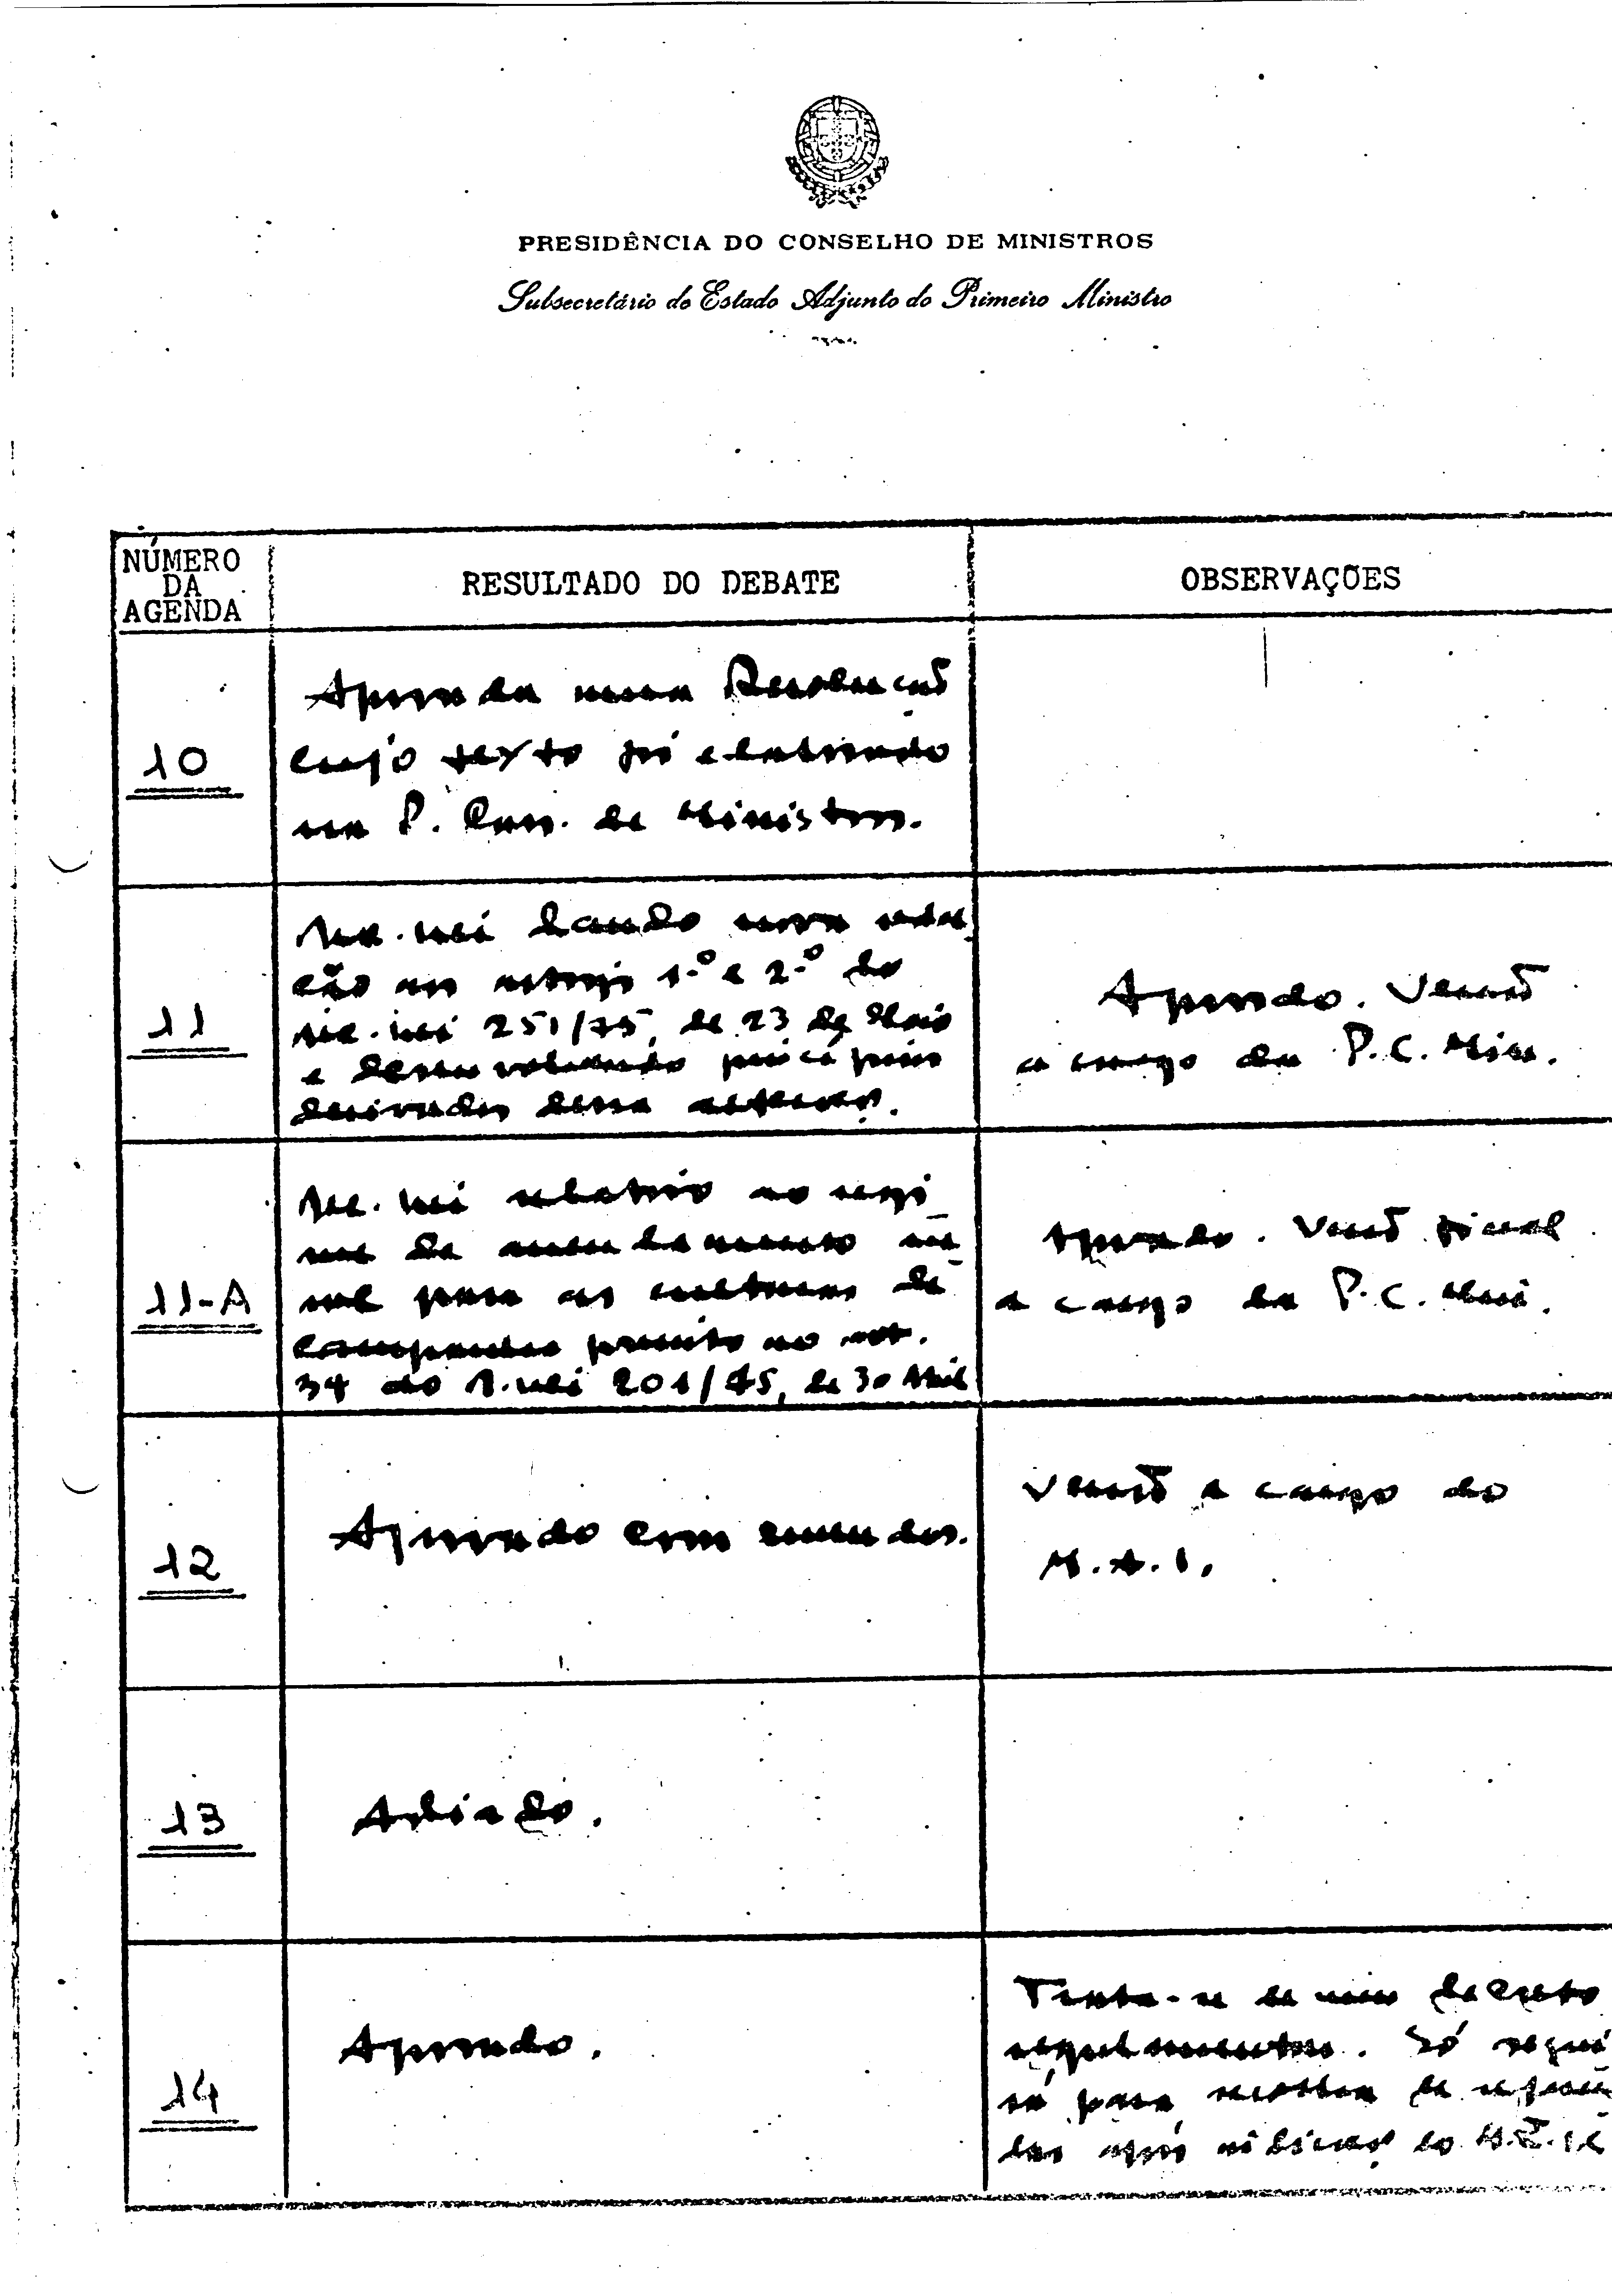 PRESIDÊNCIA DO CONSELHO DE MINISTROS
Subsecretário de Estado Adjunto do Primeiro Ministro
NÚMERO DA AGENDA
RESULTADO DO DEBATE
OBSERVAÇÕES
10
Aprovada numa Resolução
cujo texto foi elaborado
na P. Con. de Ministros.
11
Dec. Lei dando nova redac
ção aos artigos 1.º e 2.º do
Dec. Lei 251/75, de 23 de Maio
e
derivados dessa
Aprovado. Versão
a cargo da P. C. Min.
11-A
Dec. Lei relativo ao regi
me de arrendamento
para as de
previsto no art.
34 do D. Lei 201/75, de 30 Abril
Aprovado. Versão final
a cargo da P. C. Mini.
12
Aprovado com emendas.
Versão a cargo do
M. A. I.
13
Adiado.
14
Aprovado.
Trata-se de um decreto
regulamentar. Só segui
rá para
após do